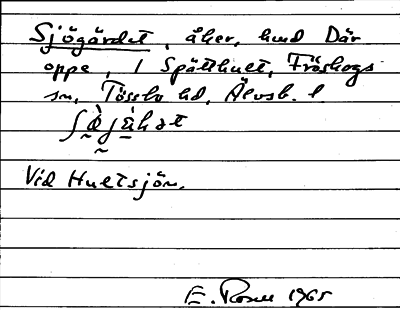 Sjögärdet, åker, hmd Där
oppe, 1 Spätthult, Fröskogs
sn, Tössbo hd, Älvsb. l
Vid Hultsjön.
E. Rosell 1965